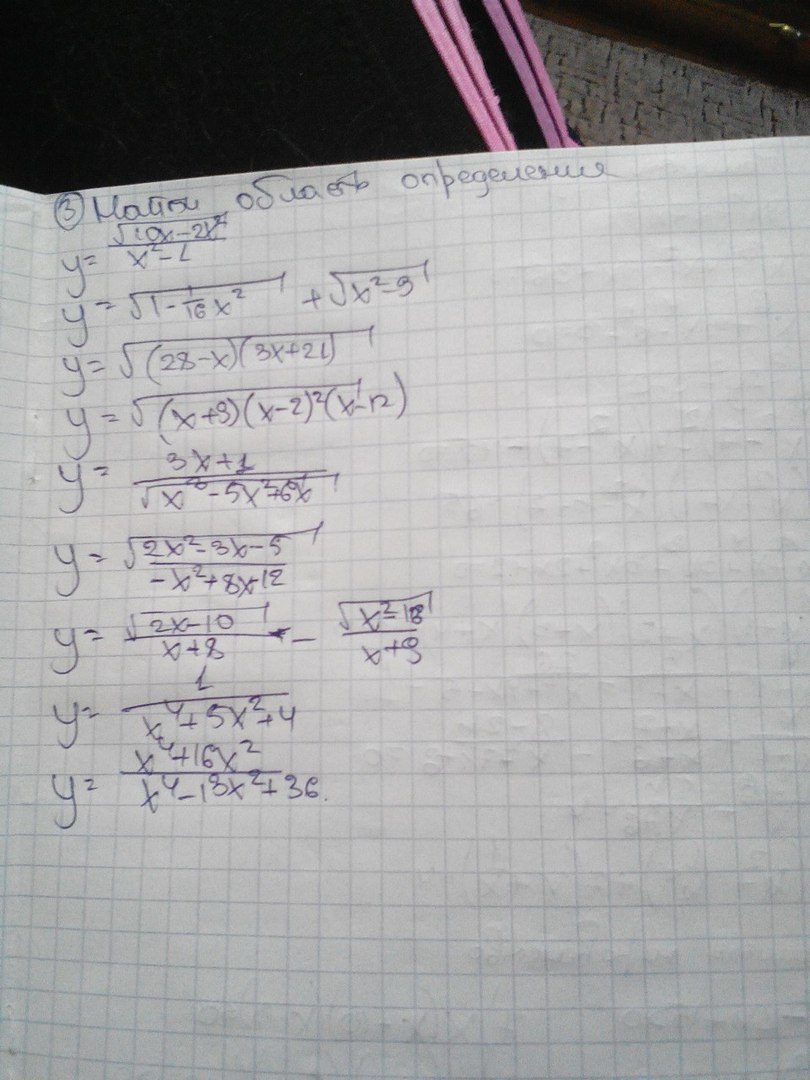 ③ Найти область определения
y = √(10x-2x²) / (x²-1)
y = √(1-1/16 x²) + √(x²-9)
y = √((28-x)(3x+21))
y = √((x+9)(x-2)²(x-12))
y = (3x+1) / √(x³-5x²+6x)
y = √((2x²-3x-5) / (-x²+8x-12))
y = √(2x-10) / (x+8) - √(x²-18) / (x+9)
y = 1 / (x⁴+5x²+4)
y = (x⁴+16x²) / (x⁴-13x²+36).